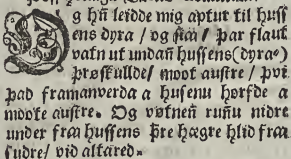 Og hñ leidde mig aptur til huss
ens dyra / og siaa / þar flaut
vatn ut undañ hussens (dyra)
þrøskullde / moot austre / þvi
þad framanverda a husenu horfde a
moote austre. Og vøtneñ runu nidre
under fraa hussens þre hægre hlid fraa
sudre / vid altared.